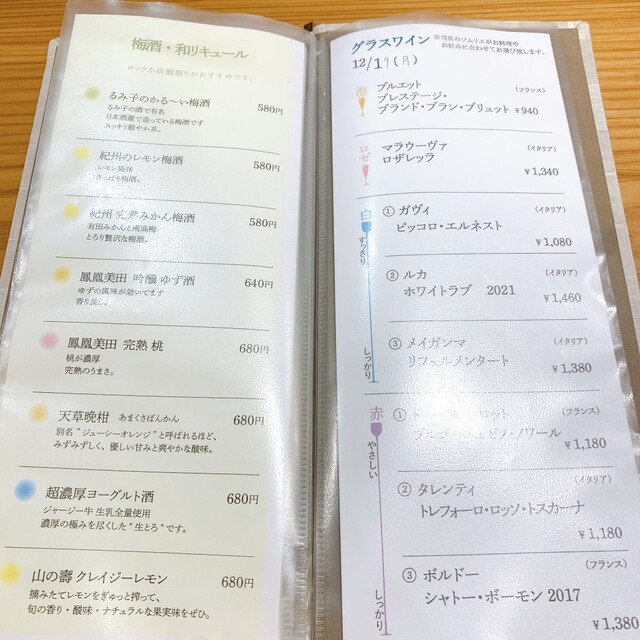 梅酒・和リキュール
ロックか炭酸割りがおすすめです。
るみ子のかる〜い梅酒 580円
るみ子の酒で有名
日本酒蔵で造っている梅酒です
スッキリ軽やか系。
紀州のレモン梅酒 580円
レモン風味
さっぱり梅酒。
紀州 完熟みかん梅酒 580円
有田みかんと南高梅
とろり贅沢な梅酒。
鳳凰美田 吟醸 ゆず酒 640円
ゆずの風味が効いてます
香り良し。
鳳凰美田 完熟 桃 680円
桃が濃厚
完熟のうまさ。
天草晩柑 あまくさばんかん 680円
別名“ジューシーオレンジ”と呼ばれるほど、
みずみずしく、優しい甘みと爽やかな酸味。
超濃厚ヨーグルト酒 680円
ジャージー牛 生乳全量使用
濃厚の極みを尽くした“生とろ”です。
山の壽 クレイジーレモン 680円
摘みたてレモンをぎゅっと搾って、
旬の香り・酸味・ナチュラルな果実味をぜひ。
グラスワイン ※当店のソムリエがお料理や
お好みに合わせてお選び致します。
12/19(月)
泡
ブルエット (フランス)
プレステージ・
ブランド・ブラン・ブリュット ¥940
ロゼ
マラウーヴァ (イタリア)
ロザレッラ
¥1,340
白
すっきり
① ガヴィ (イタリア)
ピッコロ・エルネスト
¥1,080
② ルカ (イタリア)
ホワイトラブ 2021
¥1,460
③ メイガンマ (イタリア)
リフェルメンタート
¥1,380
しっかり
赤
やさしい
① ロット (フランス)
ノワール
¥1,180
② タレンティ (イタリア)
トレフォーロ・ロッソ・トスカーナ
¥1,180
③ ボルドー (フランス)
シャトー・ボーモン 2017
¥1,380
しっかり